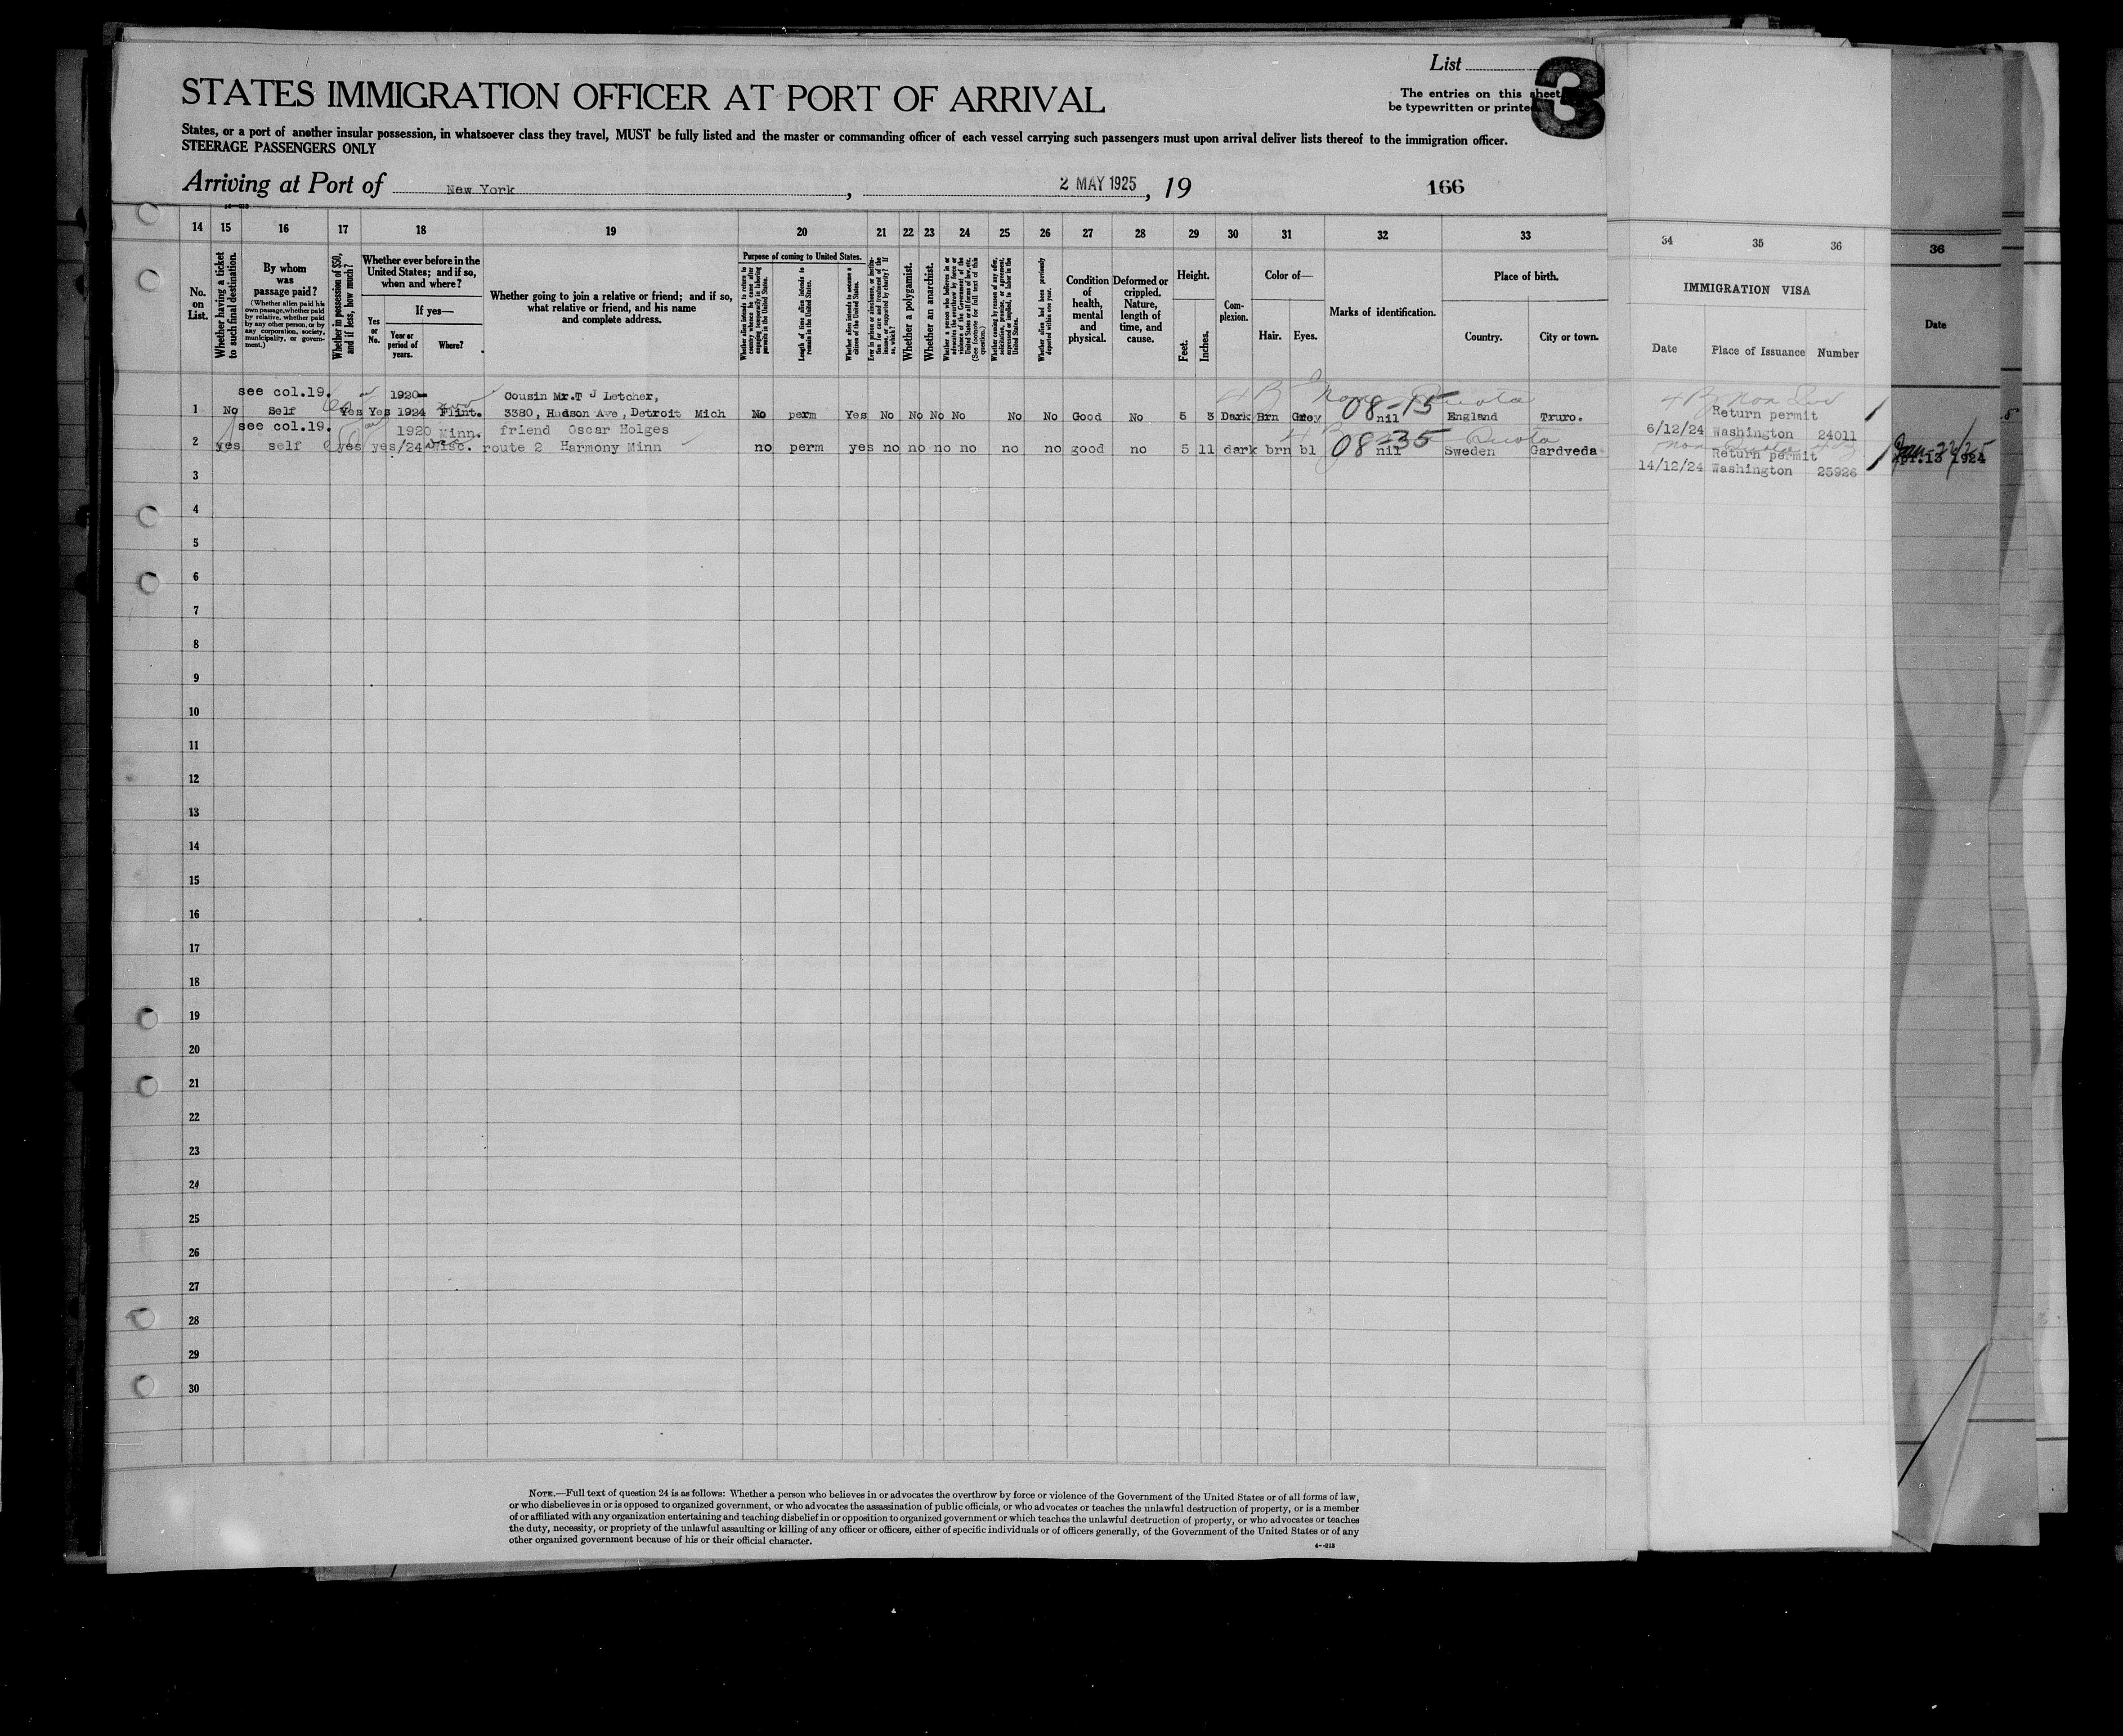 List
3
STATES IMMIGRATION OFFICER AT PORT OF ARRIVAL
The entries on this sheet
be typewritten or printe
States, or a port of another insular possession, in whatsoever class they travel, MUST be fully listed and the master or commanding officer of each vessel carrying such passengers must upon arrival deliver lists thereof to the immigration officer.
STEERAGE PASSENGERS ONLY
Arriving at Port of New York, 2 MAY 1925, 19 166
14 15 16 17 18 19 20 21 22 23 24 25 26 27 28 29 30 31 32 33 34 35 36
36
No. on List.
Whether having a ticket to such final destination.
By whom was passage paid?
(Whether alien paid his own passage, whether paid by relative, whether paid by any other person, or by any corporation, society, municipality, or government.)
Whether in possession of $50, and if less, how much?
Whether ever before in the United States; and if so, when and where?
If yes—
Yes or No.
Year or period of years.
Where?
Whether going to join a relative or friend; and if so, what relative or friend, and his name and complete address.
Purpose of coming to United States.
Whether alien intends to return to country whence he came after engaging temporarily in laboring pursuits in the United States.
Length of time alien intends to remain in the United States.
Whether alien intends to become a citizen of the United States.
Ever in prison or almshouse, or institution for care and treatment of the insane, or supported by charity? If so, which?
Whether a polygamist.
Whether an anarchist.
Whether a person who believes in or advocates the overthrow by force or violence of the Government of the United States or all forms of law, etc. (See footnote for full text of this question.)
Whether coming by reason of any offer, solicitation, promise, or agreement, expressed or implied, to labor in the United States.
Whether alien had been previously deported within one year.
Condition of health, mental and physical.
Deformed or crippled. Nature, length of time, and cause.
Height.
Feet.
Inches.
Complexion.
Color of—
Hair.
Eyes.
Marks of identification.
Place of birth.
Country.
City or town.
IMMIGRATION VISA
Date
Place of Issuance
Number
Date
see col.19. 1920- Cousin Mr.T J Letcher, 4 B Non Quota
1 No Self Yes Yes 1924 Flint. 3380, Hudson Ave, Detroit Mich No perm Yes No No No No No No Good No 5 3 Dark Brn Grey 08-15 nil England Truro. Return permit
6/12/24 Washington 24011
see col.19. 1920 Minn. friend Oscar Holges
2 yes self yes yes /24 Wisc. route 2 Harmony Minn no perm yes no no no no no no good no 5 11 dark brn bl 08-35 nil Sweden Gardveda Return permit
Quota
14/12/24 Washington 25926
1924
3
4
5
6
7
8
9
10
11
12
13
14
15
16
17
18
19
20
21
22
23
24
25
26
27
28
29
30
NOTE.—Full text of question 24 is as follows: Whether a person who believes in or advocates the overthrow by force or violence of the Government of the United States or of all forms of law,
or who disbelieves in or is opposed to organized government, or who advocates the assassination of public officials, or who advocates or teaches the unlawful destruction of property, or is a member
of or affiliated with any organization entertaining and teaching disbelief in or opposition to organized government or which teaches the unlawful destruction of property, or who advocates or teaches
the duty, necessity, or propriety of the unlawful assaulting or killing of any officer or officers, either of specific individuals or of officers generally, of the Government of the United States or of any
other organized government because of his or their official character.